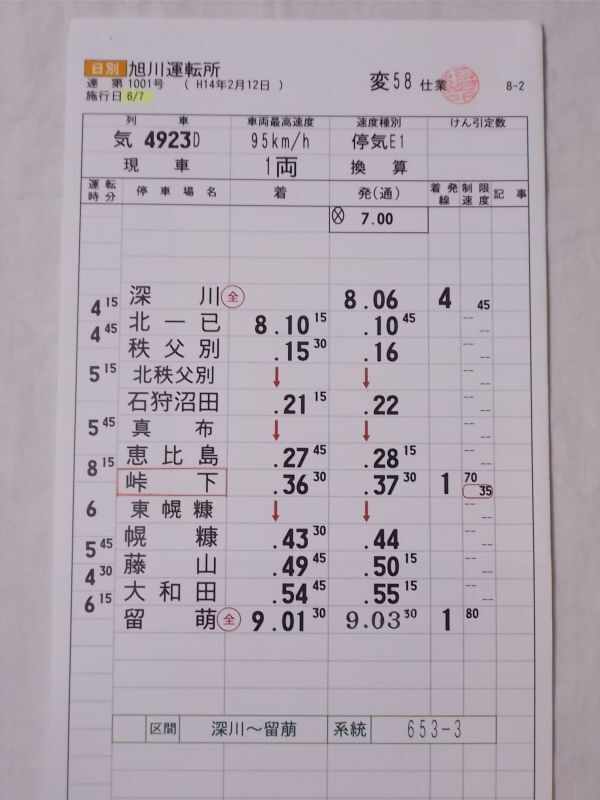 日別 旭川運転所
達 第 1001号 ( H14年2月12日 ) 変58 仕業 8-2
施行日 6/7
列 車 車両最高速度 速度種別 けん引定数
気 4923D 95km/h 停気E1
現 車 1両 換 算
運転時分 停車場名 着 発(通) 着発線 制限速度 記事
Ⓧ 7.00
深 川 全 8.06 4 45
4 15
北一已 8.10 15 .10 45 -- --
4 45
秩父別 .15 30 .16 -- --
5 15 北秩父別 ↓ ↓ -- --
石狩沼田 .21 15 .22 -- --
5 45 真 布 ↓ ↓ -- --
恵比島 .27 45 .28 15 -- --
8 15
峠 下 .36 30 .37 30 1 70 35
6 東幌糠 ↓ ↓ -- --
幌 糠 .43 30 .44 -- --
5 45
藤 山 .49 45 .50 15 -- --
4 30
大和田 .54 45 .55 15 -- --
6 15
留 萌 全 9.01 30 9.03 30 1 80
区間 深川～留萠 系統 653-3